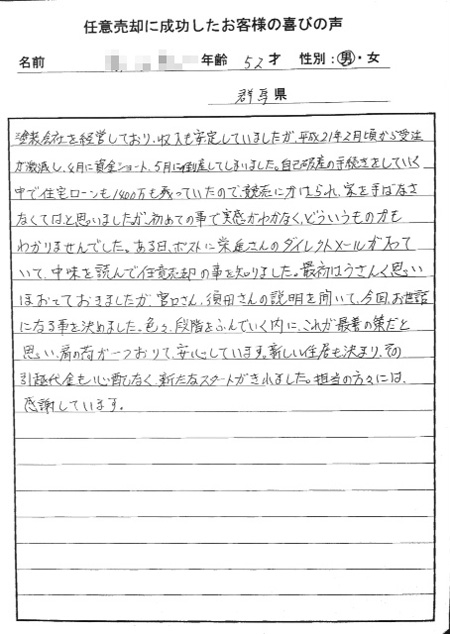 任意売却に成功したお客様の喜びの声
名前 年齢 52才 性別:男・女
群馬県
塗装会社を経営しており、収入も安定していましたが、平成21年2月頃から受注
が激減し、4月に資金ショート、5月に倒産してしまいました。自己破産の手続きをしていく
中で住宅ローンも1400万も残っていたので、競売にかけられ、家を手ばなさ
なくてはと思いましたが、初めての事で実感がわかなく、どういうものかも
わかりませんでした。ある日、ポストに栄進さんのダイレクトメールが入って
いて、中味を読んで任意売却の事を知りました。最初はうさんくさく思い
ほおっておきましたが、宮口さん、須田さんの説明を聞いて、今回、お世話
になる事を決めました。色々、段階をふんでいく内に、これが最善の策だと
思い、肩の荷が一つおりて、安心しています。新しい住居も決まり、その
引越代金も心配なく、新たなスタートがきれました。担当の方々には、
感謝しています。